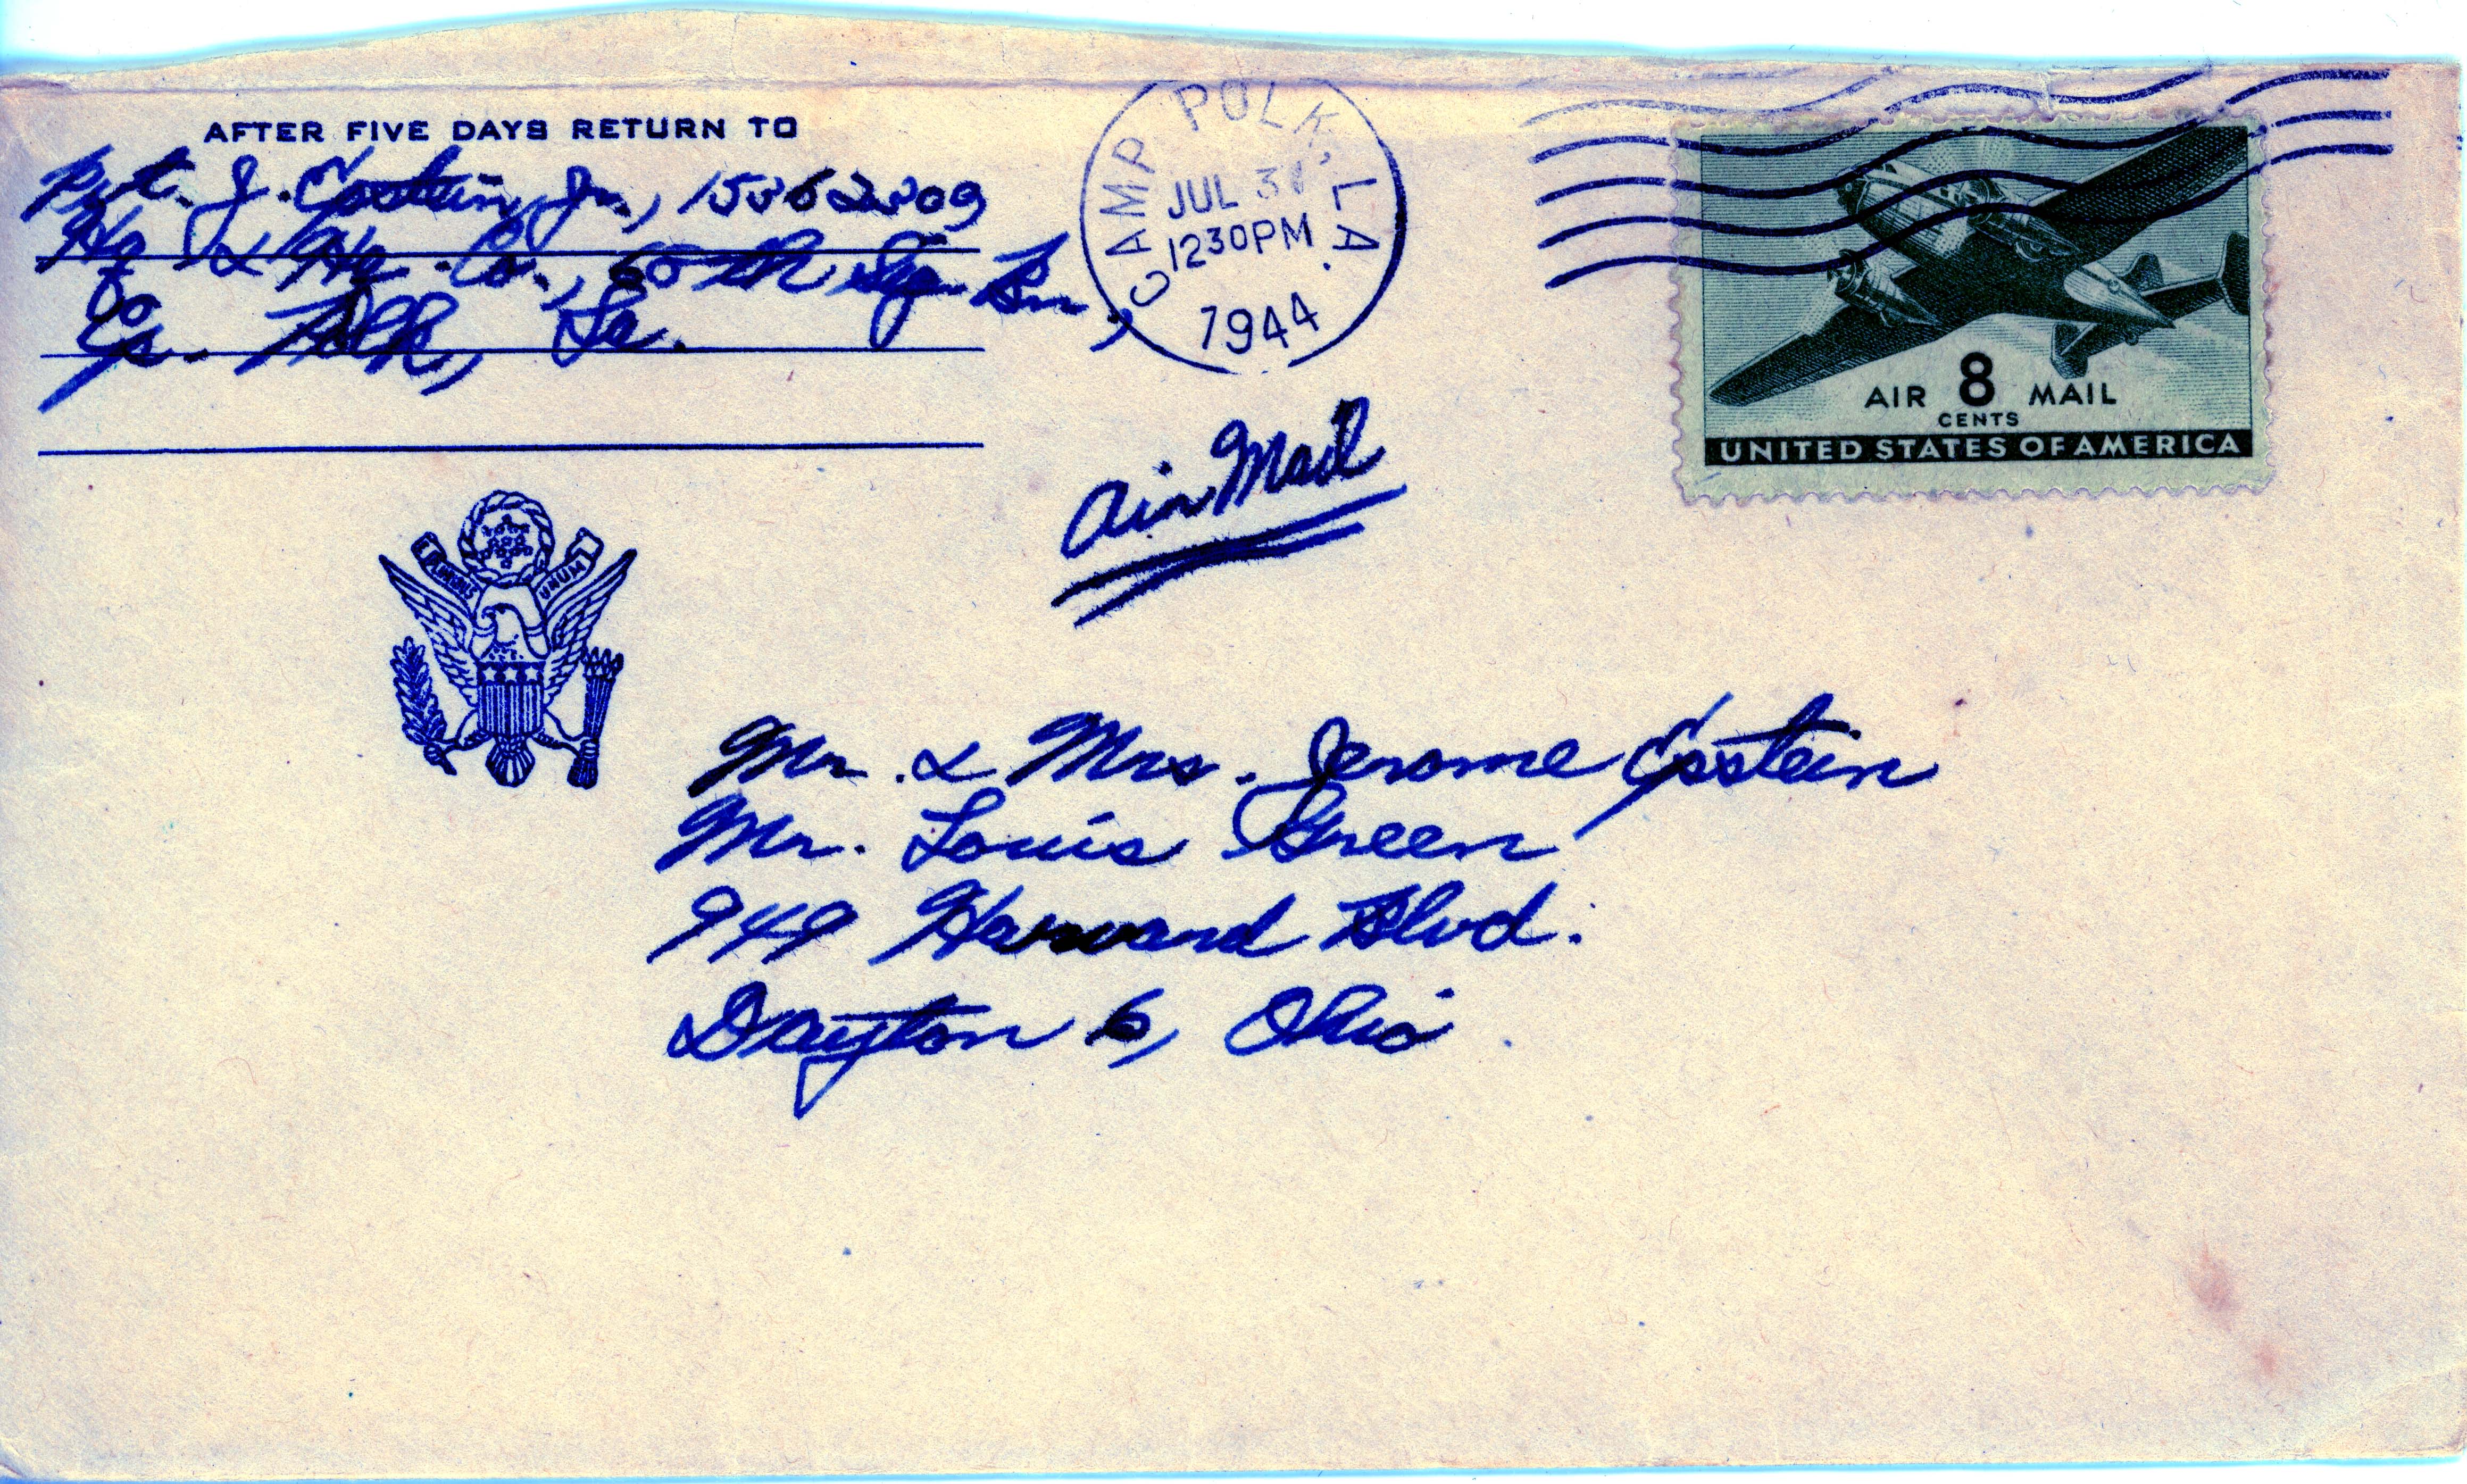 AFTER FIVE DAYS RETURN TO
Pvt. J. Epstein, Jr.,
Hq & Hq. Co., Sig. Bn.,
Cp. Polk, La.
CAMP POLK, LA.
JUL 31
1230PM
1944
AIR 8 MAIL
CENTS
UNITED STATES OF AMERICA
Air Mail
E PLURIBUS UNUM
Mr. & Mrs. Jerome Epstein
Mr. Louis Green
949 Harvard Blvd.
Dayton 6, Ohio